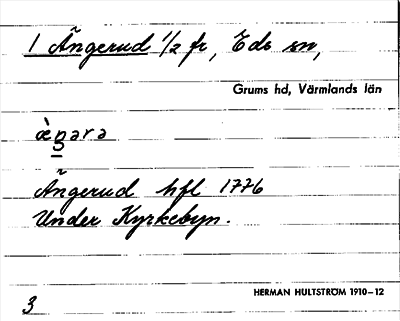 1 Ängerud 1/2 fr, Eds sn,
Grums hd, Värmlands län
æ̀ŋara
Ängerud hfl 1776
Under Kyrkebyn.
HERMAN HULTSTRÖM 1910-12
3